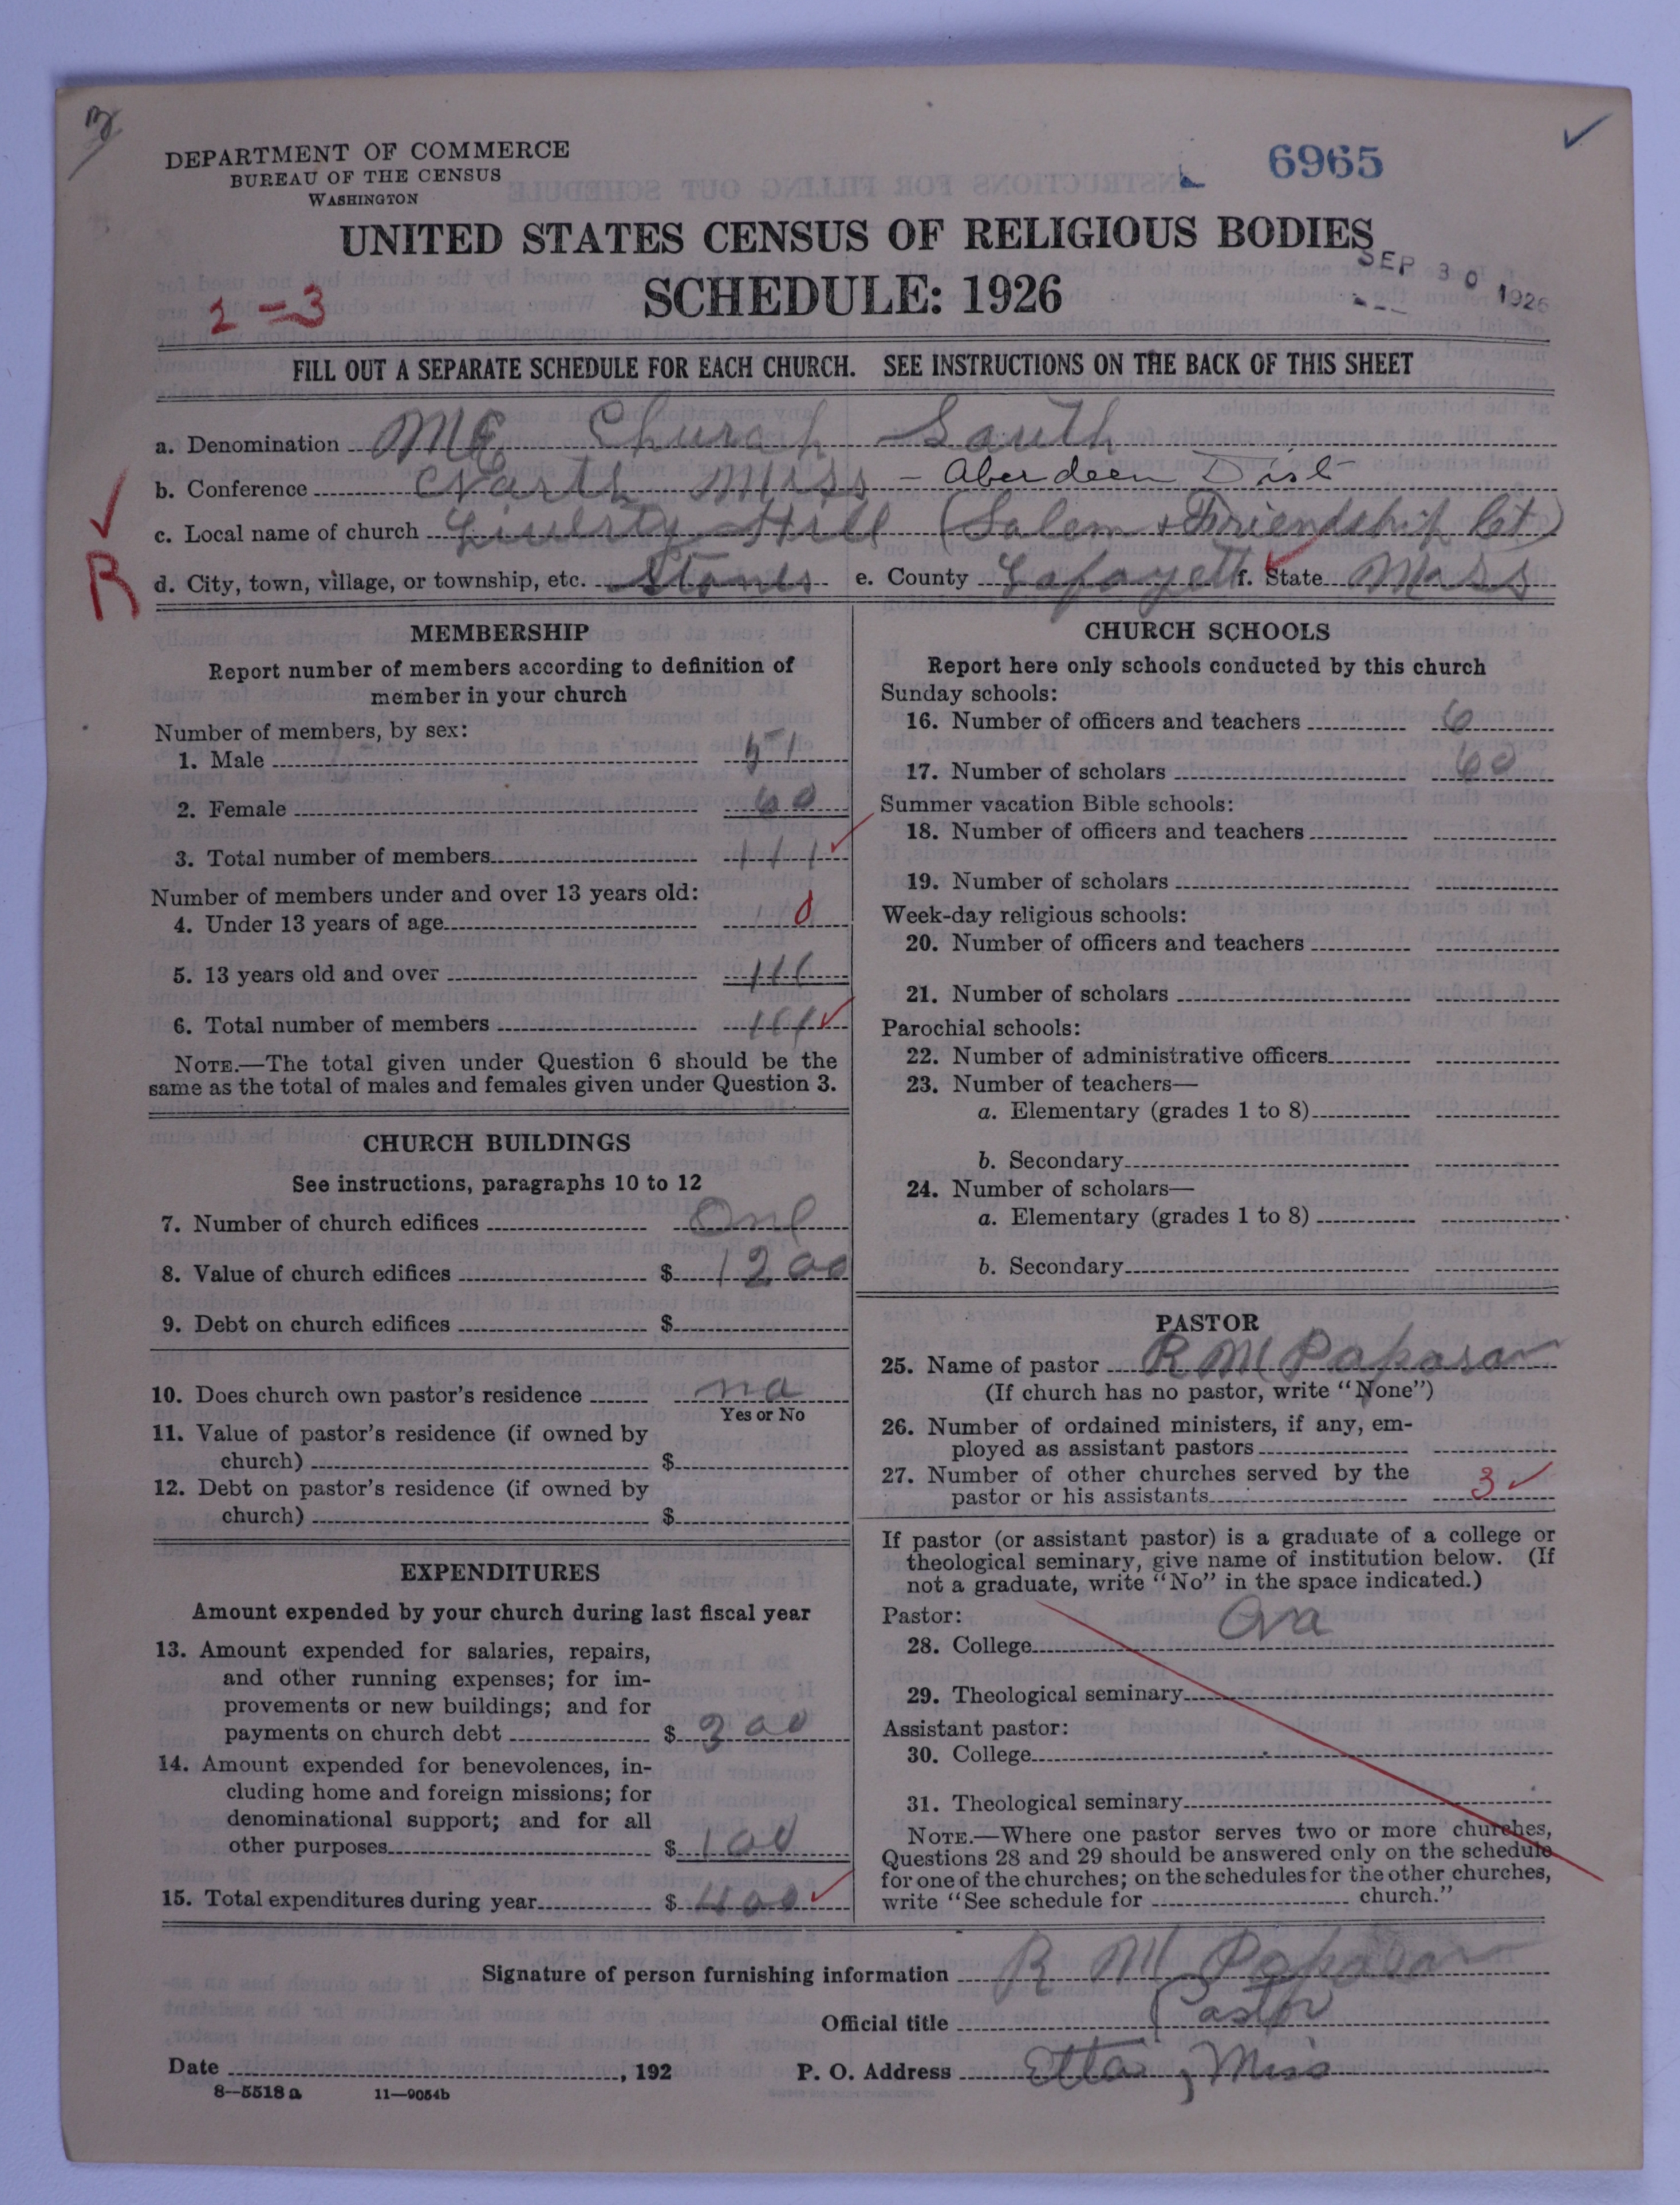 DEPARTMENT OF COMMERCE
BUREAU OF THE CENSUS
WASHINGTON
6965
UNITED STATES CENSUS OF RELIGIOUS BODIES
SEP 30 1926
SCHEDULE: 1926
2-3
FILL OUT A SEPARATE SCHEDULE FOR EACH CHURCH. SEE INSTRUCTIONS ON THE BACK OF THIS SHEET
a. Denomination ME Church South
b. Conference North Miss - Aberdeen Dist
c. Local name of church Liberty Hill (Salem + Friendship Ct)
R
d. City, town, village, or township, etc. e. County Lafayett f. State Miss
MEMBERSHIP
Report number of members according to definition of
member in your church
Number of members, by sex:
1. Male 51
2. Female 60
3. Total number of members 111
Number of members under and over 13 years old:
4. Under 13 years of age 0
5. 13 years old and over 111
6. Total number of members 111
NOTE.—The total given under Question 6 should be the
same as the total of males and females given under Question 3.
CHURCH BUILDINGS
See instructions, paragraphs 10 to 12
7. Number of church edifices One
8. Value of church edifices $ 1200
9. Debt on church edifices $
10. Does church own pastor's residence no
Yes or No
11. Value of pastor's residence (if owned by
church) $
12. Debt on pastor's residence (if owned by
church) $
EXPENDITURES
Amount expended by your church during last fiscal year
13. Amount expended for salaries, repairs,
and other running expenses; for im-
provements or new buildings; and for
payments on church debt $ 300
14. Amount expended for benevolences, in-
cluding home and foreign missions; for
denominational support; and for all
other purposes $ 100
15. Total expenditures during year $ 400
CHURCH SCHOOLS
Report here only schools conducted by this church
Sunday schools:
16. Number of officers and teachers 6
17. Number of scholars 60
Summer vacation Bible schools:
18. Number of officers and teachers
19. Number of scholars
Week-day religious schools:
20. Number of officers and teachers
21. Number of scholars
Parochial schools:
22. Number of administrative officers
23. Number of teachers—
a. Elementary (grades 1 to 8)
b. Secondary
24. Number of scholars—
a. Elementary (grades 1 to 8)
b. Secondary
PASTOR
25. Name of pastor R M Papasan
(If church has no pastor, write "None")
26. Number of ordained ministers, if any, em-
ployed as assistant pastors
27. Number of other churches served by the
pastor or his assistants 3
If pastor (or assistant pastor) is a graduate of a college or
theological seminary, give name of institution below. (If
not a graduate, write "No" in the space indicated.)
Pastor:
28. College
29. Theological seminary
Assistant pastor:
30. College
31. Theological seminary
NOTE.—Where one pastor serves two or more churches,
Questions 28 and 29 should be answered only on the schedule
for one of the churches; on the schedules for the other churches,
write "See schedule for church."
Signature of person furnishing information R M Papasan
Official title Pastor
Date , 192 P. O. Address Etta, Miss
8—5518 a 11—9054b